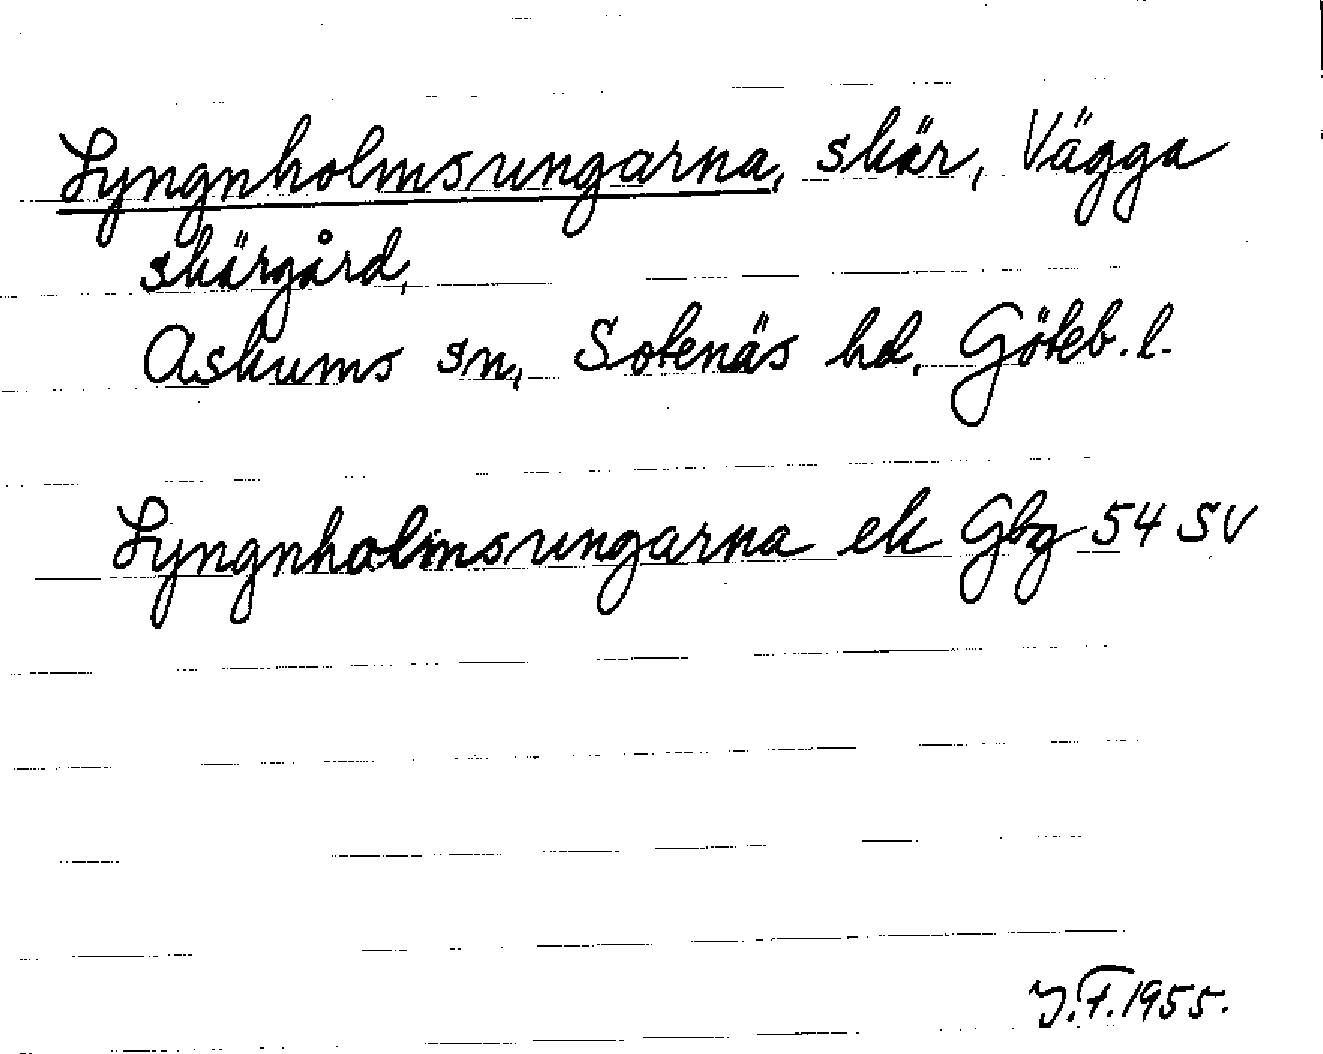 Lyngnholmsungarna, skär, Vägga
skärgård,
Askums sn, Sotenäs hd. Göteb. l.
Lyngnholmsungarna ek Gbg 54 SV
J.F. 1955.